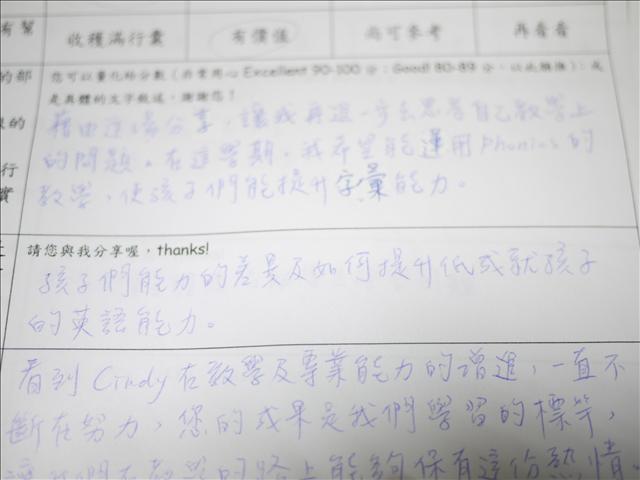 有幫
收穫滿行囊
有價值
尚可參考
再看看
的部
您可以量化給分數(非常用心Excellent 90-100 分;Good! 80-89 分,以此類推);或
是具體的文字敘述,謝謝您!
藉由這場分享,讓我再進一步去思考自己教學上
的
的問題。在這學期,我希望能運用Phonics的
行
教學,使孩子們能提升字彙能力。
實
請您與我分享喔,thanks!
孩子們能力的差異及如何提升低成就孩子
的英語能力。
看到 Cindy 在教學及專業能力的增進,一直不
斷在努力,您的成果是我們學習的標竿,
讓我們在教學的路上能夠保有這份熱情